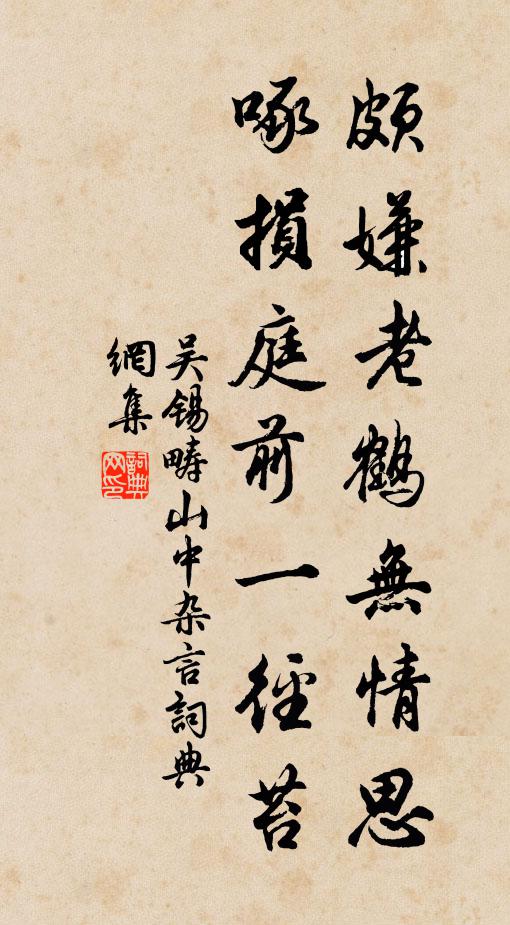 頗嫌老鶴無情思
啄損庭前一徑苔
吴锡畴山中杂言詞典
網集
詞典
网印